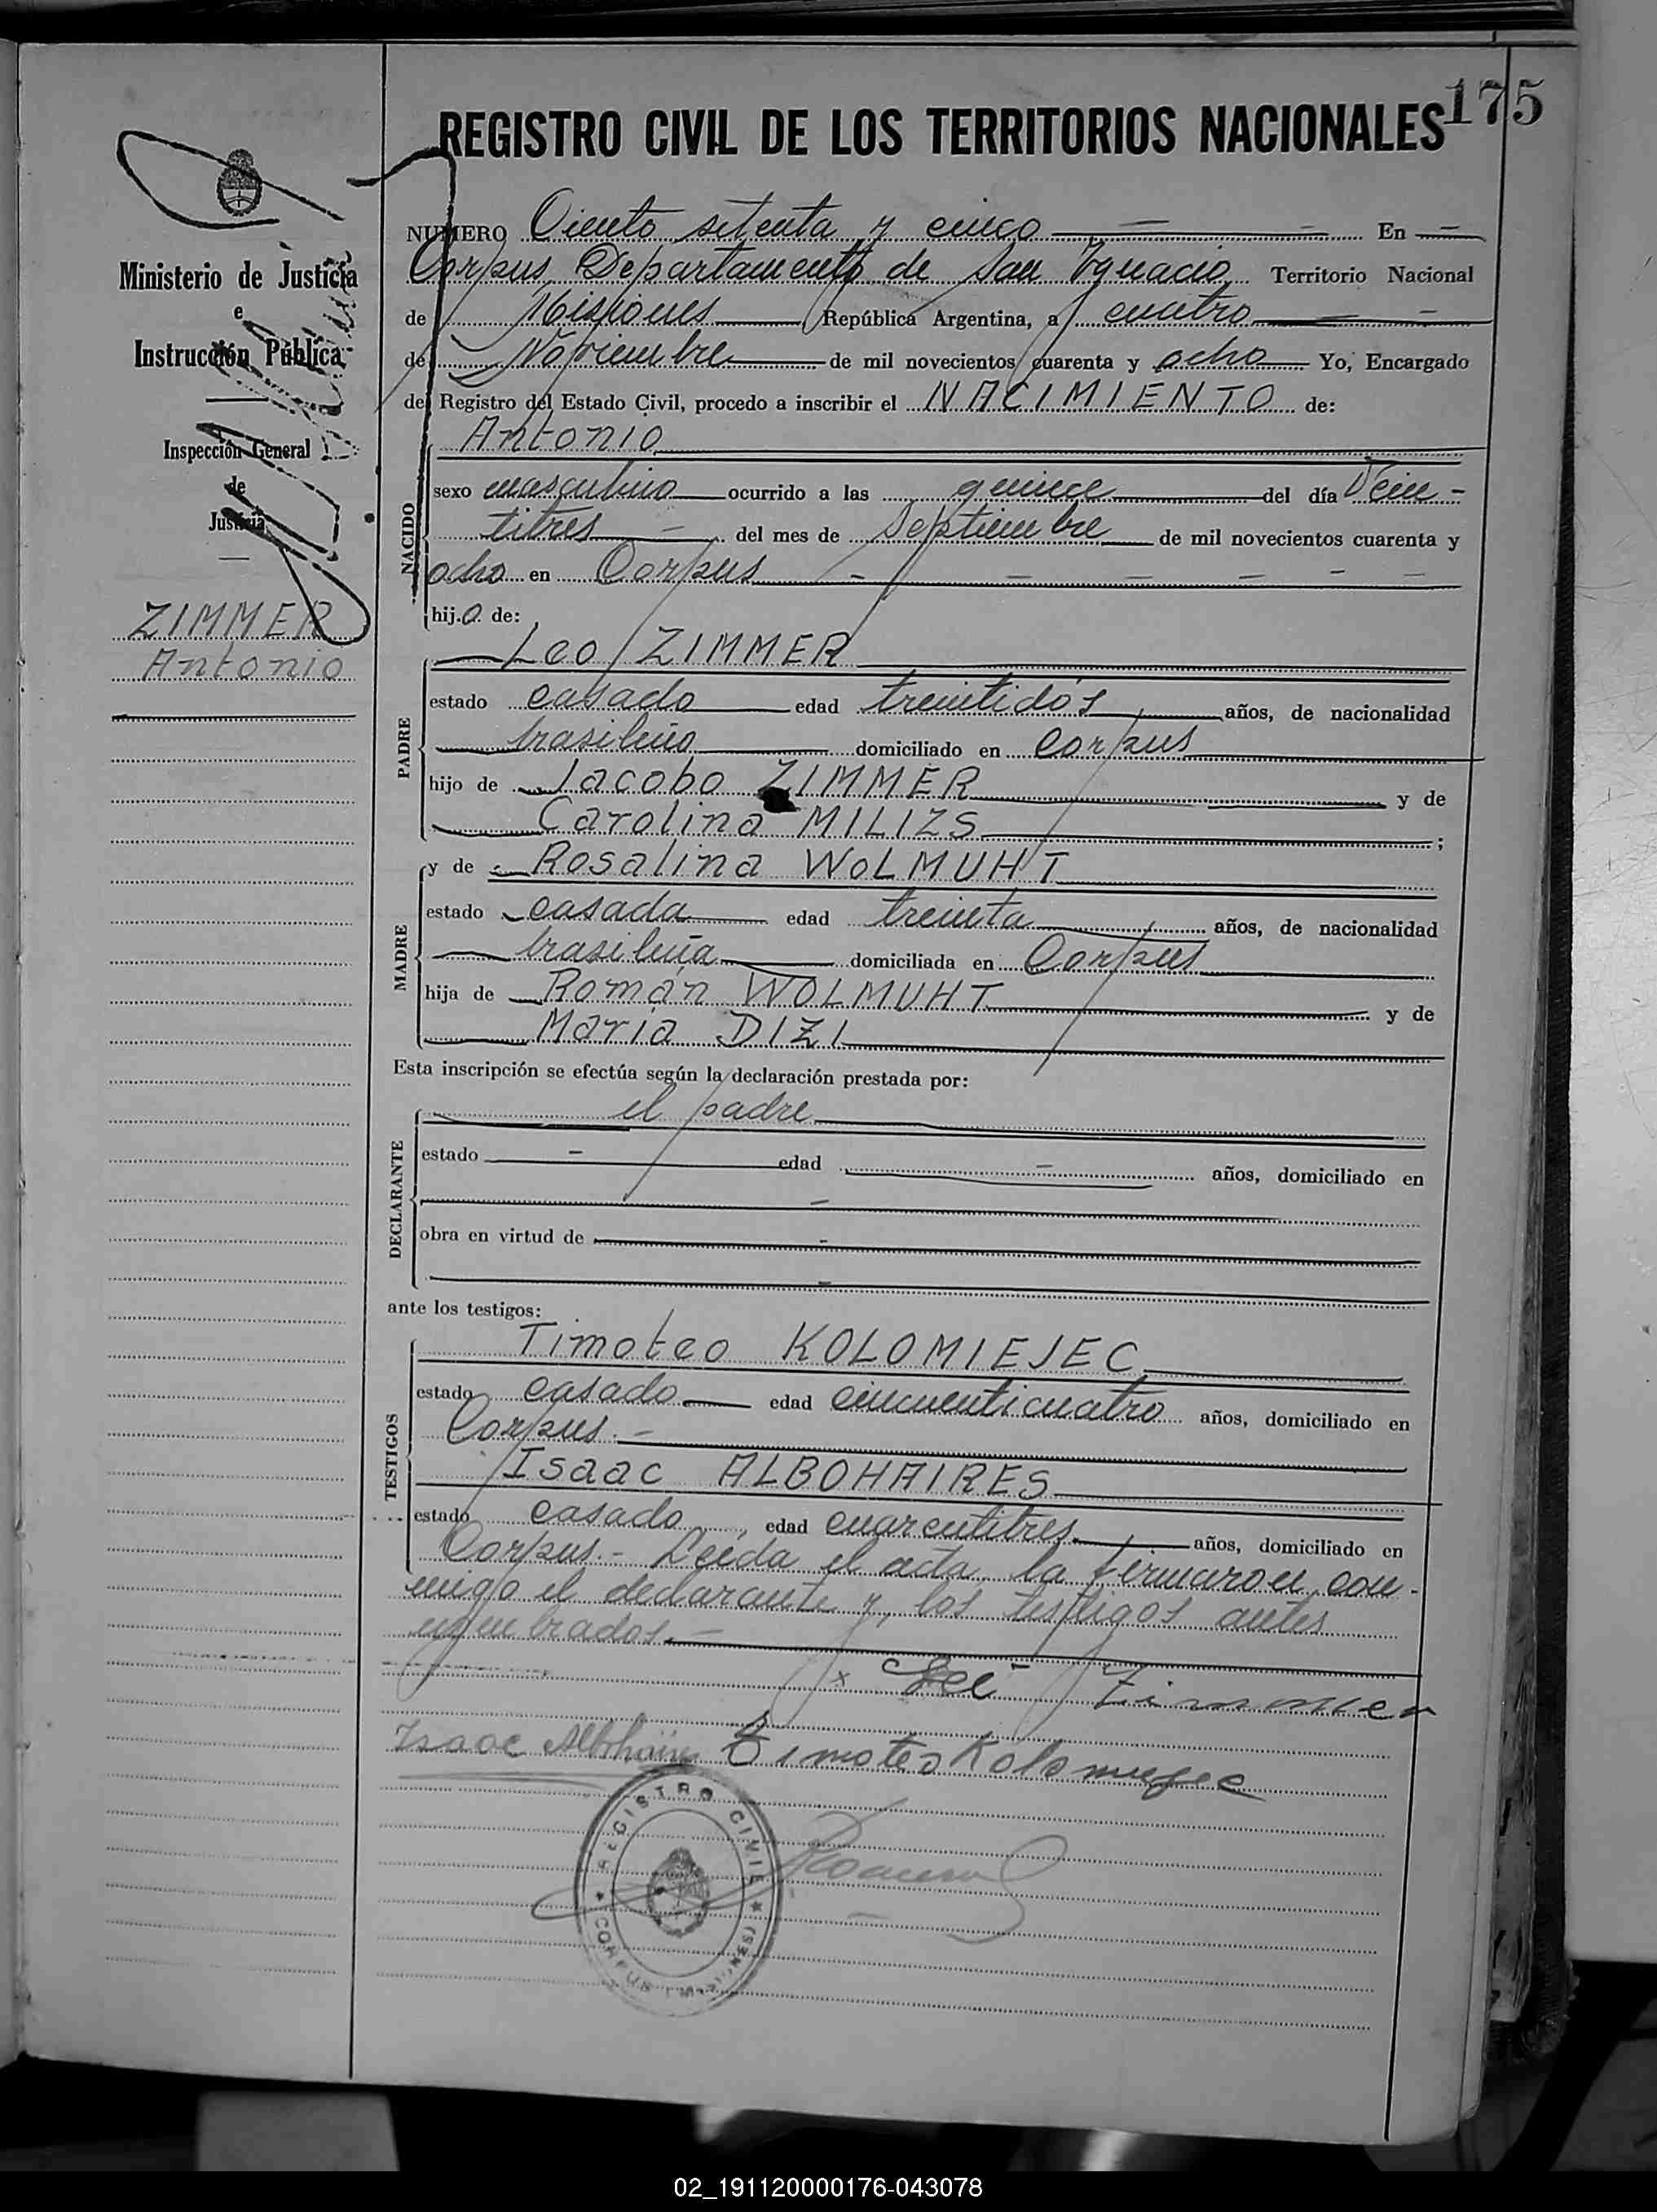 175
REGISTRO CIVIL DE LOS TERRITORIOS NACIONALES
Ministerio de Justicia
e
Instrucción Pública
Inspección General
de
Justicia
ZIMMER
Antonio
NUMERO Ciento setenta y cinco En
Corpus Departamento de San Ygnacio Territorio Nacional
de Misiones República Argentina, a cuatro
de Noviembre de mil novecientos cuarenta y ocho Yo, Encargado
del Registro del Estado Civil, procedo a inscribir el NACIMIENTO de:
NACIDO
Antonio
sexo masculino ocurrido a las quince del día Vein-
titres del mes de Septiembre de mil novecientos cuarenta y
ocho en Corpus
hijo de:
PADRE
Leo ZIMMER
estado casado edad treintidós años, de nacionalidad
brasileña domiciliado en Corpus
hijo de Jacobo ZIMMER y de
Carolina MILIZS ;
MADRE
y de Rosalina WOLMUHT
estado casada edad treinta años, de nacionalidad
brasileña domiciliada en Corpus
hija de Román WOLMUHT y de
María DIZI
Esta inscripción se efectúa según la declaración prestada por:
DECLARANTE
el padre
estado edad años, domiciliado en
obra en virtud de
ante los testigos:
TESTIGOS
Timoteo KOLOMIEJEC
estado casado edad cincuenticuatro años, domiciliado en
Corpus.-
Isaac ALBOHAIRES
estado casado edad cuarentitres años, domiciliado en
Corpus.- Leída el acta la firmaron con-
migo el declarante y los testigos antes
nombrados.-
x Leo Zimmer
Isaac Timoteo
REGISTRO CIVIL
CORPUS (MISIONES)
02_191120000176-043078